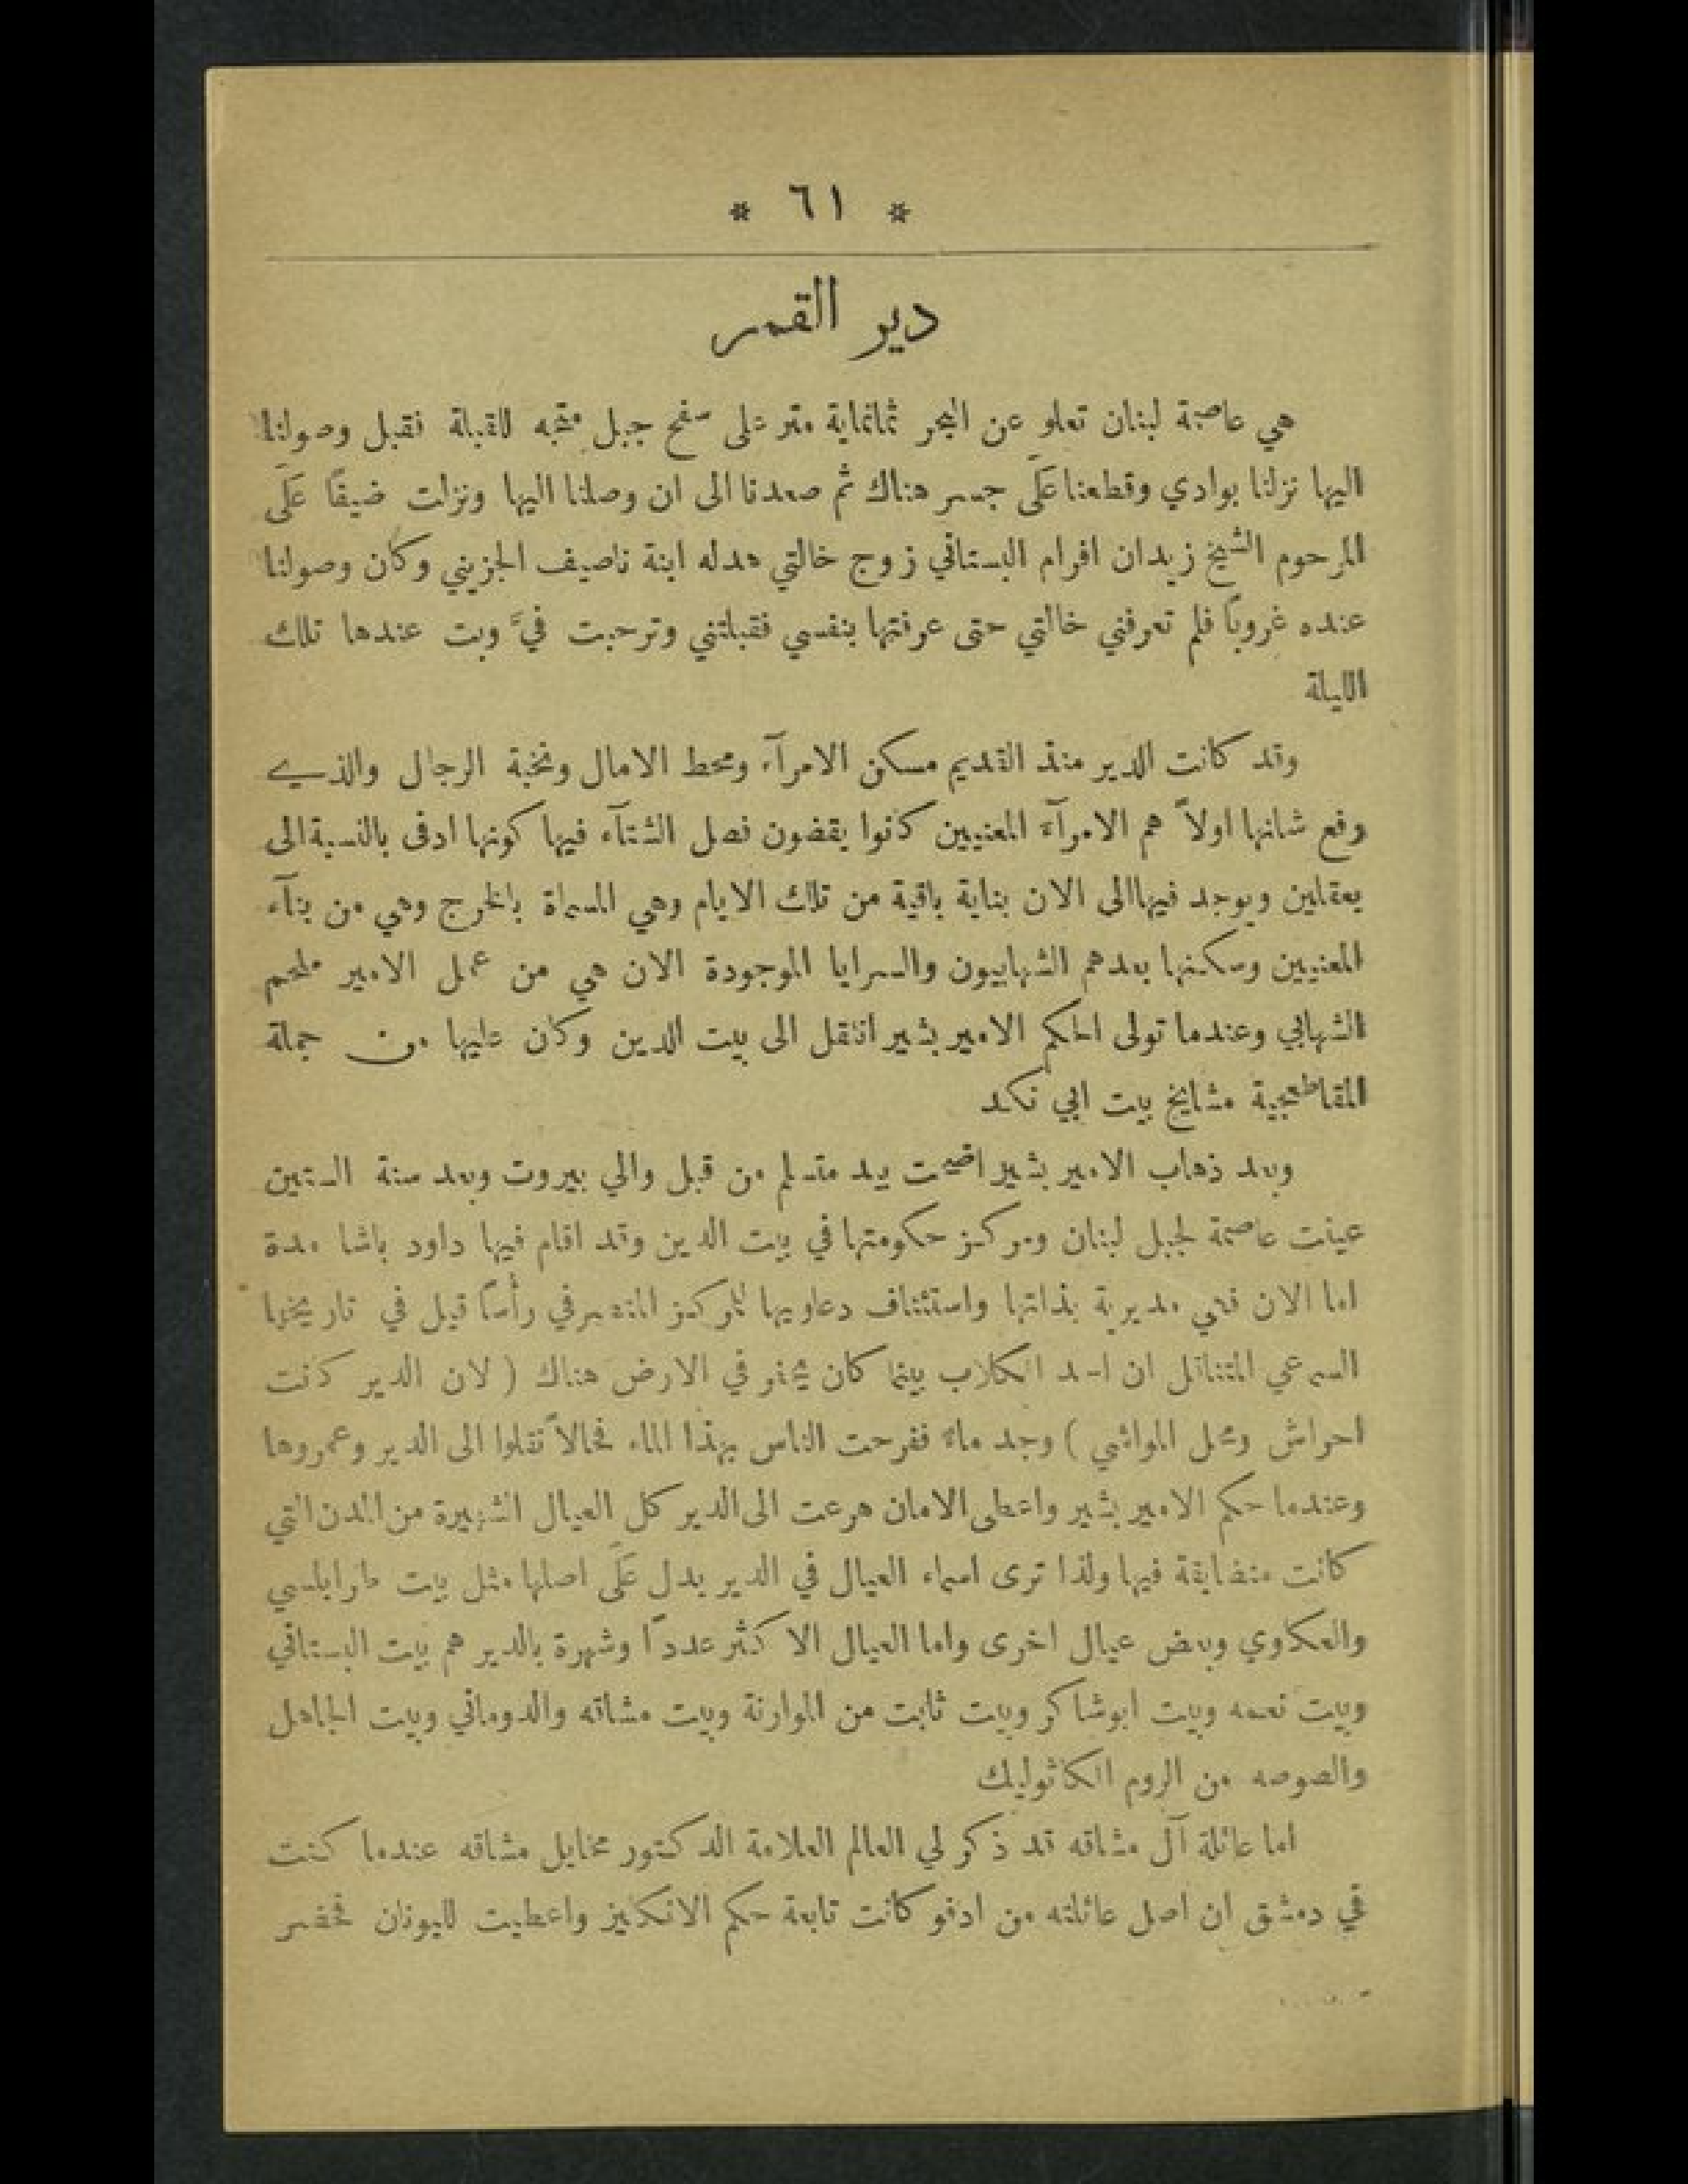 * ٦١ *
دير القمر
هي عاصمة لبنان تعلو عن البحر ثمانماية متر على سفح جبل متجه للقبلة فقبل وصولنا
اليها نزلنا بوادي وقطعنا عَلَى جسر هناك ثم صعدنا الى ان وصلنا اليها ونزلت ضيفًا عَلَى
المرحوم الشيخ زيدان افرام البستاني زوج خالتي هدله ابنة ناصيف الجزيني وكان وصولنا
عنده غروبًا فلم تعرفني خالتي حتى عرفتها بنفسي فقبلتني وترحبت فيَّ وبت عندها تلك
الليلة
وقد كانت الدير منذ القديم مسكن الامرآء ومحط الامال ونخبة الرجال والذي
رفع شانها اولاً هم الامرآء المعنيين كانوا يقضون فصل الشتآء فيها كونها ادفى بالنسبة الى
بعقلين ويوجد فيها الى الان بناية باقية من تلك الايام وهي المسماة بالخرج وهي من بنآء
المعنيين وسكنها بعدهم الشهابيون والسرايا الموجودة الان هي من عمل الامير ملحم
الشهابي وعندما تولى الحكم الامير بشير انتقل الى بيت الدين وكان عليها من جملة
المقاطعجية مشايخ بيت ابي نكد
وبعد ذهاب الامير بشير اضحت بيد متسلم من قبل والي بيروت وبعد سنة الستين
عينت عاصمة لجبل لبنان ومركز حكومتها في بيت الدين وقد اقام فيها داود باشا مدة
اما الان فهي مديرية بذاتها واستئناف دعاويها للمركز المتصرفي رأسًا قيل في تاريخها
السمعي المتناقل ان احد الكلاب بينما كان يحفر في الارض هناك ( لان الدير كانت
احراش ومحل المواشي ) وجد ماءً ففرحت الناس بهذا الماء فحالاً نقلوا الى الدير وعمروها
وعندما حكم الامير بشير واعطى الامان هرعت الى الدير كل العيال الشهيرة من المدن التي
كانت متضايقة فيها ولذا ترى اسماء العيال في الدير يدل عَلَى اصلها مثل بيت طرابلسي
والعكاوي وبعض عيال اخرى واما العيال الاكثر عددًا وشهرة بالدير هم بيت البستاني
وبيت نعمه وبيت ابوشاكر وبيت ثابت من الموارنة وبيت مشاقه والدوماني وبيت الجاهل
والصوصه من الروم الكاثوليك
اما عائلة آل مشاقه قد ذكر لي العالم العلامة الدكتور مخايل مشاقه عندما كنت
في دمشق ان اصل عائلته من ادفو كانت تابعة حكم الانكليز واعطيت لليونان فحضر